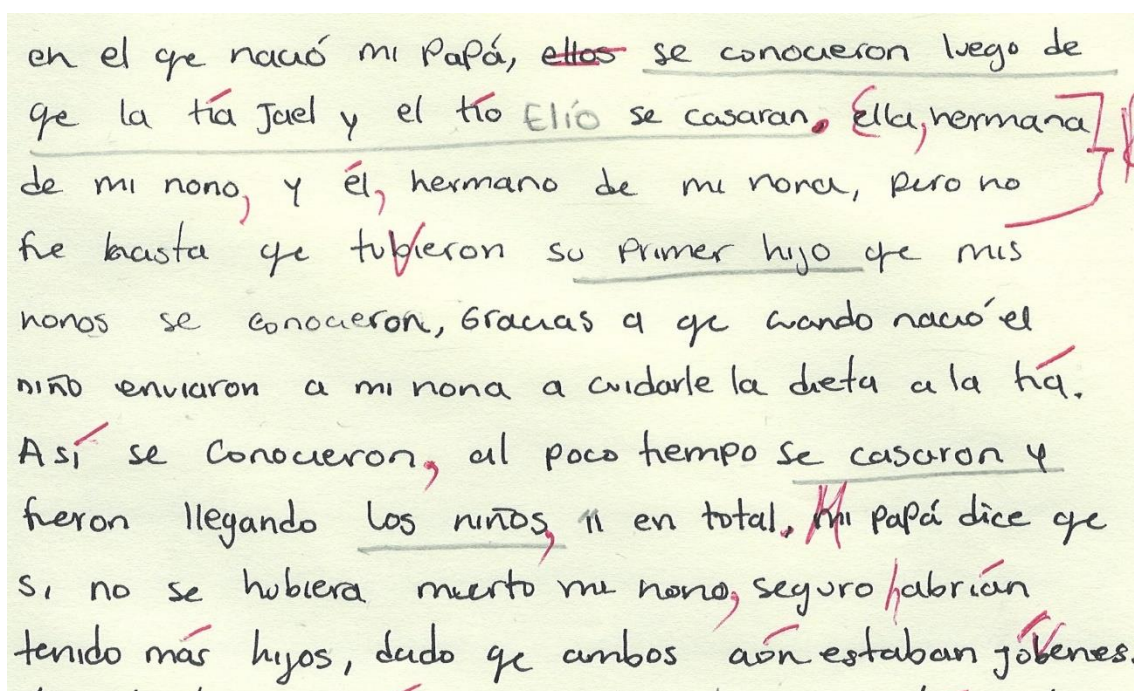 en el qe nació mi Papá, ellos se conocieron luego de
qe la tía Jael y el tío Elío se casaran. Ella, hermana
de mi nono, y él, hermano de mi nona, pero no
fue hasta qe tuvieron su primer hijo qe mis
nonos se conocieron, Gracias a qe cuando nació el
niño enviaron a mi nona a cuidarle la dieta a la tía.
Así se conocieron, al poco tiempo se casaron y
fueron llegando los niños, 11 en total. Mi papá dice qe
si no se hubiera muerto mi nono, seguro habrían
tenido más hijos, dado qe ambos aún estaban jóvenes.